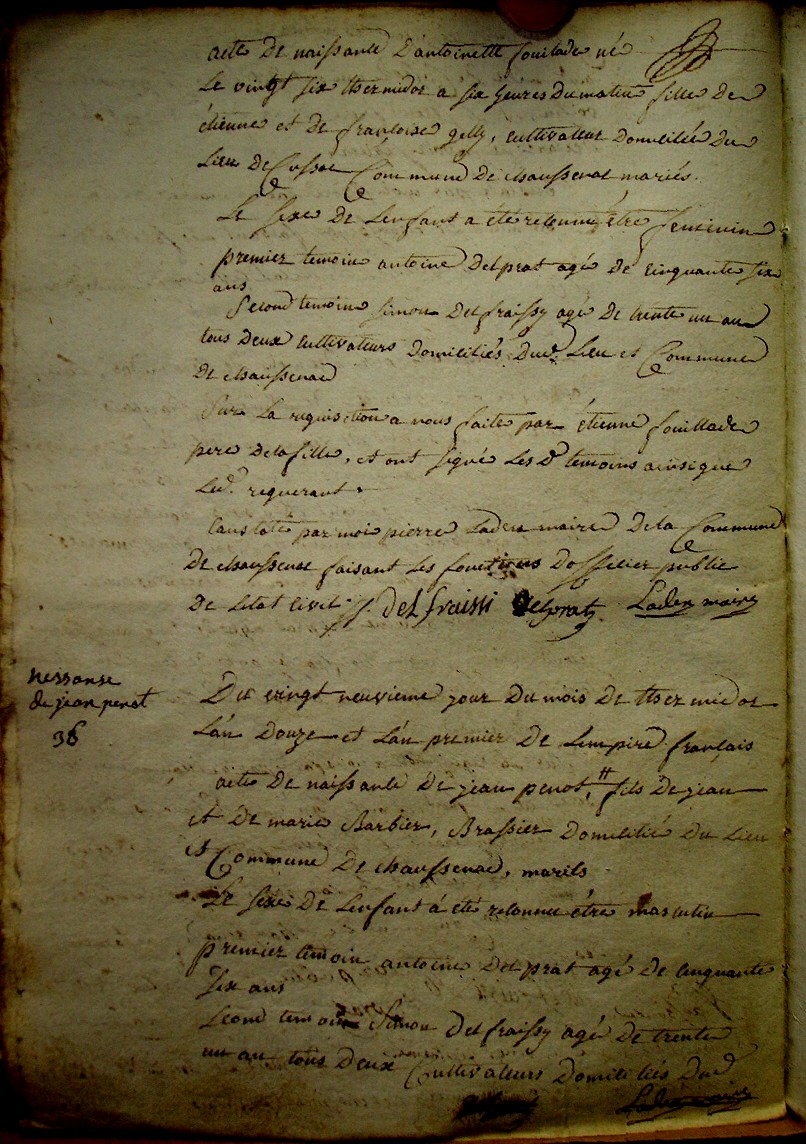 acte de naissance d'antoinette fouilade né
Le vingt six thermidor a six heures du matin fille de
étienne et de françoise gelly, cultivateur domicilié du
Lieu de Cussac Commune de chaussenac mariés.
Le sexe de Lenfant a été reconnu être feminin
premier temoin antoine delprat agé de cinquante six
ans
Second temoin simon delfraissy agé de trente un an
tous deux cultivateurs domiciliés dud. Lieu et Commune
de chaussenac
Sur La requisition a nous faite par étienne fouillade
pere de la fille, et ont signé Les d. temoins ainsi que
Led. requerant.
Constaté par moi pierre Laden maire de la Commune
de chaussenac faisant Les fonctions dofficier public
de Létat civil. delfraissi delpratz Laden maire
nessanse
de jean penot
36
Du vingt neuvieme jour du mois de thermidor
Lán douze et Lán premier de Lempire français
acte de naissance de jean penot, # fils de jean
et de marie Barbier, Brassier domicilié du Lieu
et Commune de chaussenac, mariés
Le sexe de Lenfant á eté reconnu étre masculin
premier temoin antoine delprat agé de cinquante
six ans
second temoin Simon delfraissy agé de trente
un an tous deux Cultivateurs domiciliés dud
Laden maire